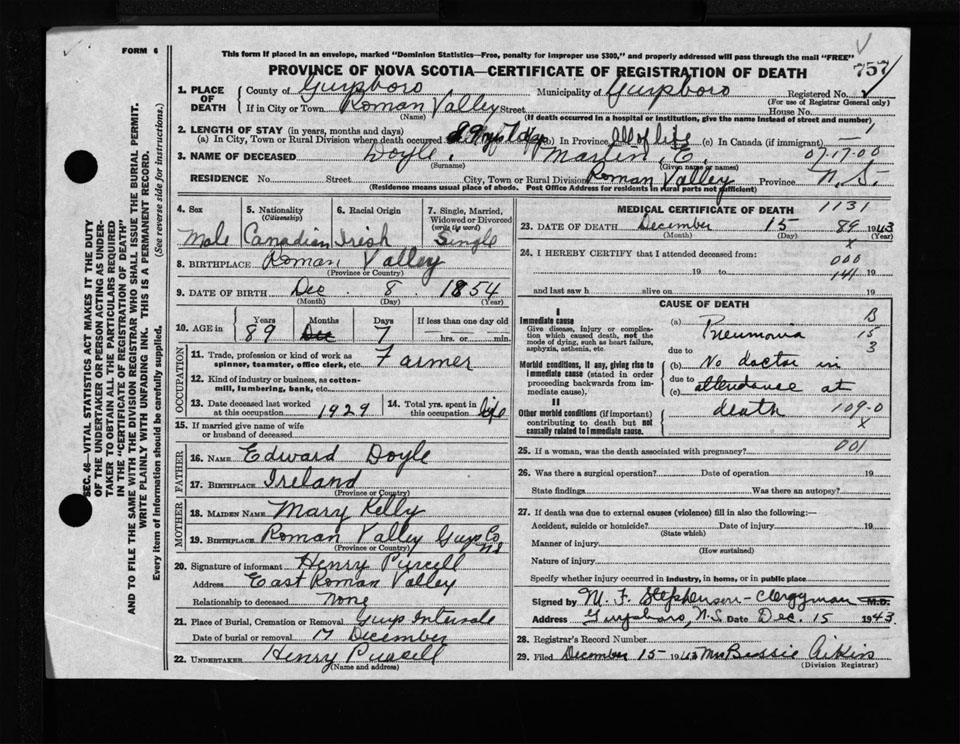 FORM 6
This form if placed in an envelope, marked "Dominion Statistics—Free, penalty for improper use $300," and properly addressed will pass through the mail "FREE"
PROVINCE OF NOVA SCOTIA—CERTIFICATE OF REGISTRATION OF DEATH
757
1. PLACE OF DEATH
County of Guysboro Municipality of Guysboro Registered No.
(For use of Registrar General only)
If in City or Town Roman Valley Street House No.
(Name) (If death occurred in a hospital or institution, give the name instead of street and number)
2. LENGTH OF STAY (in years, months and days)
(a) In City, Town or Rural Division where death occurred 89 yrs 7 days (b) In Province All of life (c) In Canada (if immigrant) — 1
3. NAME OF DECEASED Doyle, Martin, E. 07-17-00
(Surname) (Given name or names)
RESIDENCE No. Street City, Town or Rural Division Roman Valley Province N.S.
(Residence means usual place of abode. Post Office Address for residents in rural parts not sufficient)
4. Sex Male
5. Nationality (Citizenship) Canadian
6. Racial Origin Irish
7. Single, Married, Widowed or Divorced (write the word) Single
8. BIRTHPLACE Roman Valley
(Province or Country)
9. DATE OF BIRTH Dec. 8. 1854
(Month) (Day) (Year)
10. AGE in Years 89 Months Dec Days 7 If less than one day old hrs. or min.
OCCUPATION
11. Trade, profession or kind of work as spinner, teamster, office clerk, etc. Farmer
12. Kind of industry or business, as cotton-mill, lumbering, bank, etc.
13. Date deceased last worked at this occupation 1929
14. Total yrs. spent in this occupation life
15. If married give name of wife or husband of deceased
FATHER
16. NAME Edward Doyle
17. BIRTHPLACE Ireland
(Province or Country)
MOTHER
18. MAIDEN NAME Mary Kelly
19. BIRTHPLACE Roman Valley Guys Co NS
(Province or Country)
20. Signature of informant Henry Purcell
Address East Roman Valley
Relationship to deceased none
21. Place of Burial, Cremation or Removal Guys Intervale
Date of burial or removal 17 December
22. UNDERTAKER Henry Purcell
(Name and address)
MEDICAL CERTIFICATE OF DEATH 1131
23. DATE OF DEATH December 15 89 1943
(Month) (Day) (Year)
x
24. I HEREBY CERTIFY that I attended deceased from:
000
19 to 141 19
and last saw h alive on 19
CAUSE OF DEATH
I
Immediate cause
Give disease, injury or complication which caused death, not the mode of dying, such as heart failure, asphyxia, asthenia, etc.
(a) Pneumonia
B
15
3
due to
Morbid conditions, if any, giving rise to immediate cause (stated in order proceeding backwards from immediate cause).
(b) No doctor in
due to
(c) attendance at
II
Other morbid conditions (if important) contributing to death but not causally related to immediate cause.
death 109-0
x
25. If a woman, was the death associated with pregnancy? 001
26. Was there a surgical operation? Date of operation 19
State findings Was there an autopsy?
27. If death was due to external causes (violence) fill in also the following:—
Accident, suicide or homicide? Date of injury 19
(State which)
Manner of injury
(How sustained)
Nature of injury
Specify whether injury occurred in industry, in home, or in public place
Signed by M. F. Stephenson - Clergyman M.D.
Address Guysboro, N.S. Date Dec. 15 1943
28. Registrar's Record Number
29. Filed December 15 - 1943 Mrs Bessie Aikins
(Division Registrar)
SEC. 46—VITAL STATISTICS ACT MAKES IT THE DUTY
OF THE UNDERTAKER OR PERSON ACTING AS UNDERTAKER TO OBTAIN ALL THE PARTICULARS REQUIRED
IN THE "CERTIFICATE OF REGISTRATION OF DEATH"
AND TO FILE THE SAME WITH THE DIVISION REGISTRAR WHO SHALL ISSUE THE BURIAL PERMIT.
WRITE PLAINLY WITH UNFADING INK. THIS IS A PERMANENT RECORD.
Every item of information should be carefully supplied. (See reverse side for instructions.)